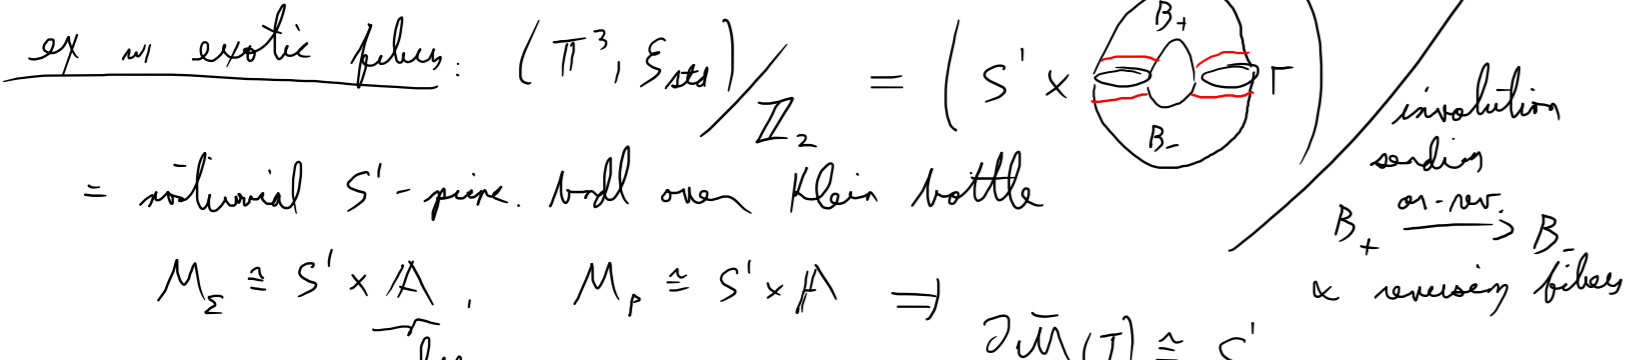 ex w/ exotic fibers: (𝕋³, ξstd)/ℤ₂ = (S¹ × B₊ B₋ Γ) /
involution sending or-rev. B₊ → B₋ & reversing fibers
= nontrivial S¹-princ. bndl over Klein bottle
M_Σ ≅ S¹ × 𝔸, M_P ≅ S¹ × 𝔸 ⇒
∂M̄(I) ≅ S¹